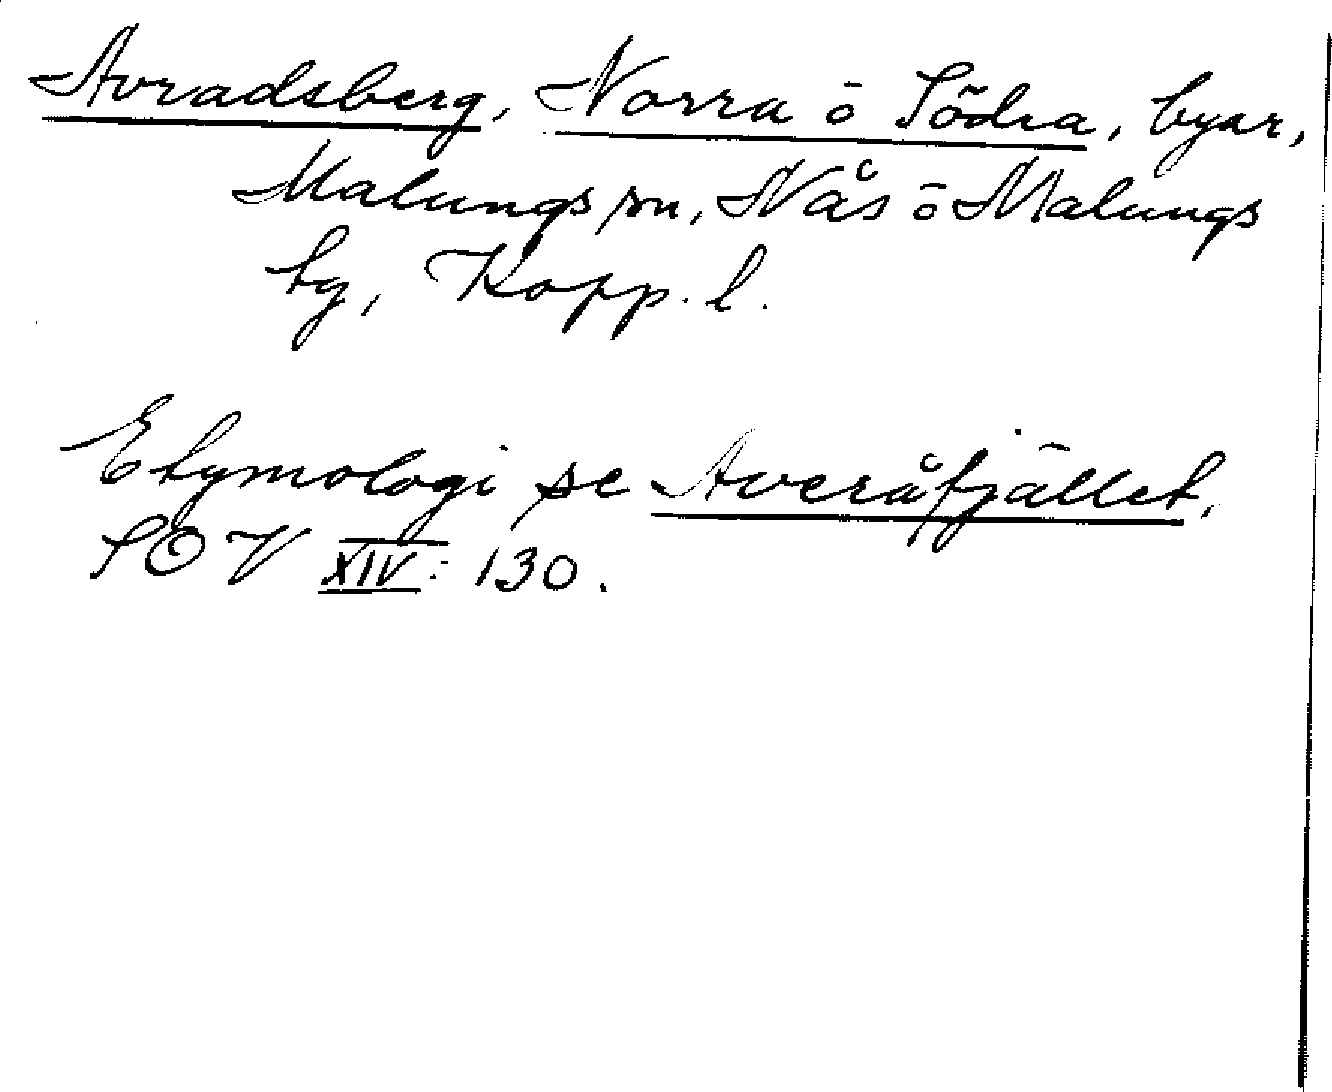 Avradsberg, Norra o Södra, byar,
Malungs sn, Nås o Malungs
tg, Kopp. l.
Etymologi se Averåfjället,
SOV XIV: 130.